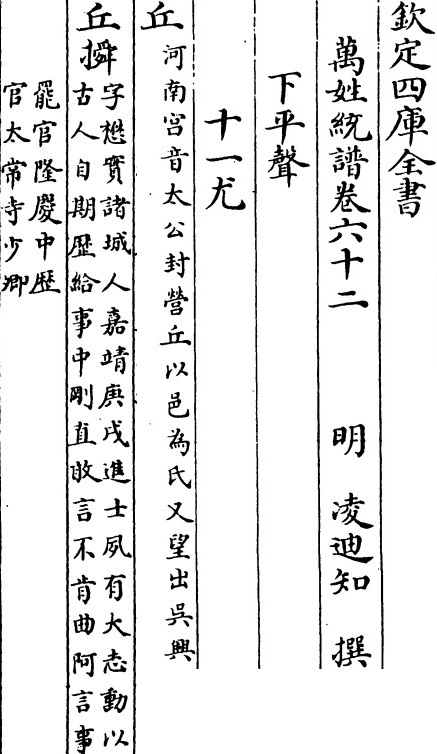 欽定四庫全書
萬姓統譜卷六十二　明　凌迪知　撰
下平聲
十一尤
丘
河南宫音太公封營丘以邑為氏又望出吳興
丘橓
字懋實諸城人嘉靖庚戌進士夙有大志動以
古人自期歷給事中剛直敢言不肯曲阿言事
罷官隆慶中歴
官太常寺少卿